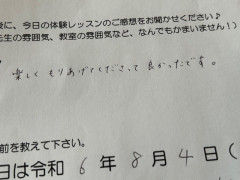 後に、今日の体験レッスンのご感想をお聞かせください♪
先生の雰囲気、教室の雰囲気など、なんでもかまいません!)
楽しくもりあげてくださって良かったです。
前を教えて下さい。
日は令和 6 年 8 月 4 日(